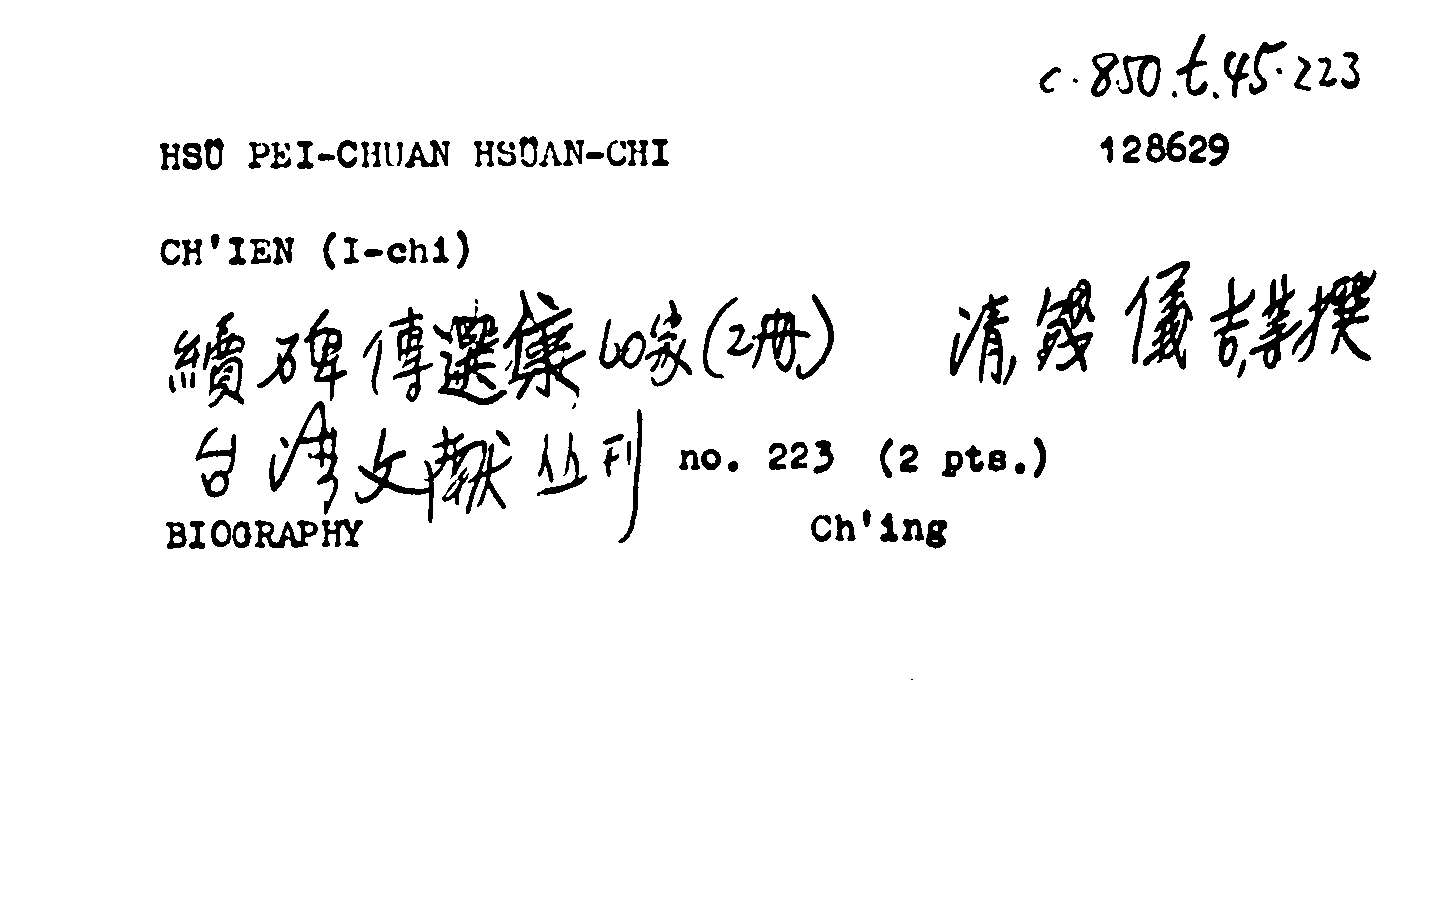 c.850.t.45.223
HSÜ PEI-CHUAN HSÜAN-CHI 128629
CH'IEN (I-chi)
續碑傳選集 60家(2冊) 清,錢儀吉,等撰
台湾文献丛刊 no. 223 (2 pts.)
BIOGRAPHY Ch'ing